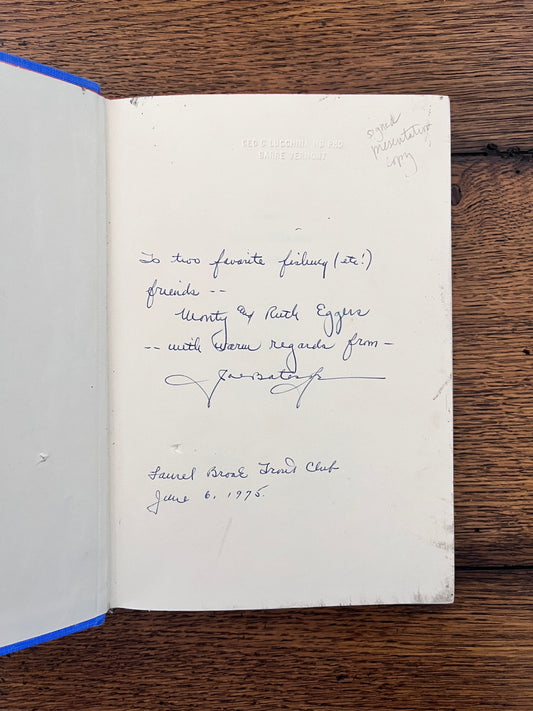 GEO C LUCCHINA MD PHD
BARRE VERMONT
signed
presentation
copy
To two favorite fishing (etc!)
friends --
Monty & Ruth Eggers
-- with warm regards from -
Joe Bates Jr
Laurel Brook Trout Club
June 6, 1975.